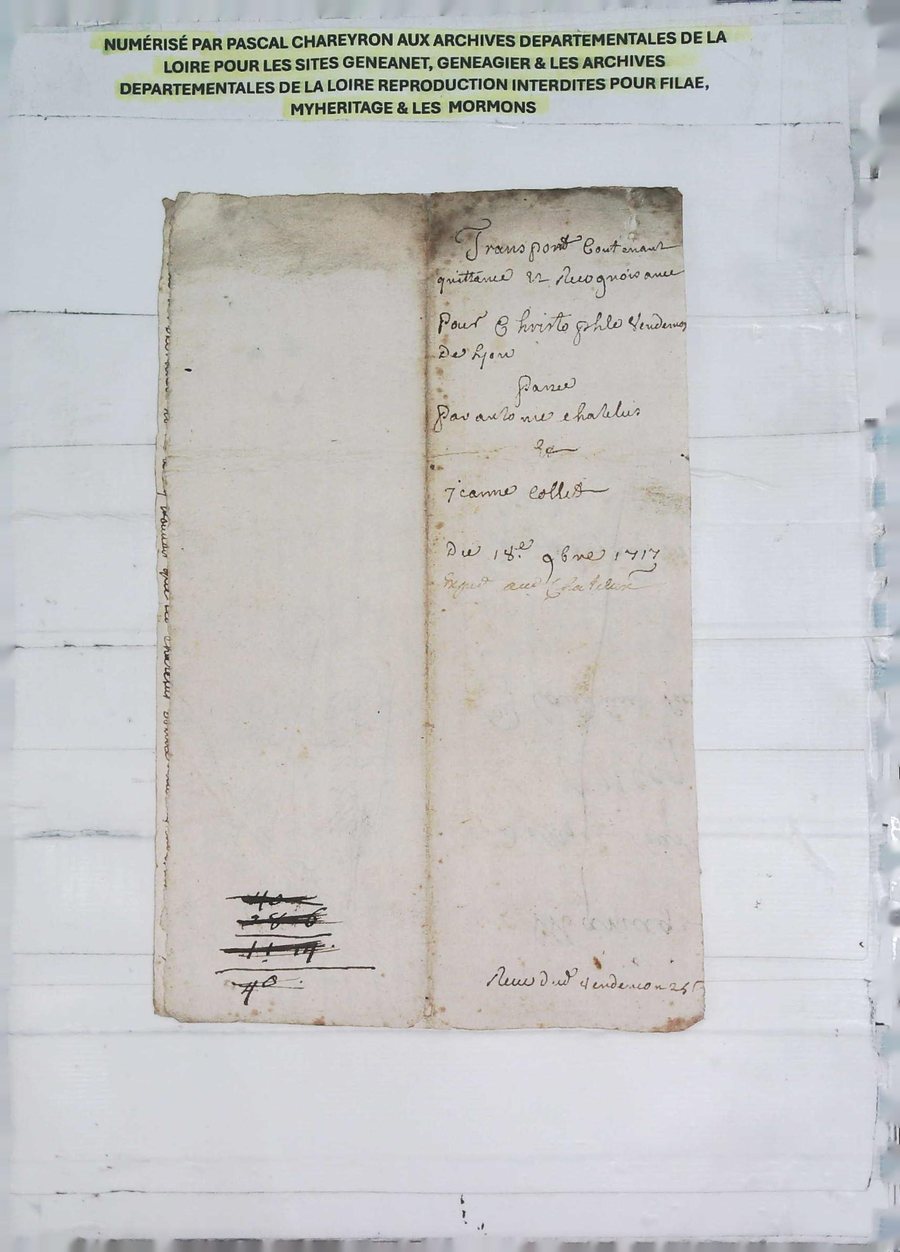 NUMÉRISÉ PAR PASCAL CHAREYRON AUX ARCHIVES DEPARTEMENTALES DE LA
LOIRE POUR LES SITES GENEANET, GENEAGIER & LES ARCHIVES
DEPARTEMENTALES DE LA LOIRE REPRODUCTION INTERDITES POUR FILAE,
MYHERITAGE & LES MORMONS
Transport Contenant
quittance Et Recognoissance
Pour Christophle Vendemon
De Lyon
Passée
Par antoine chatelus
&
Jeanne Collet
Du 18.e 9bre 1717
40
28 6
11 14
40
Receu dud Vendemon 25